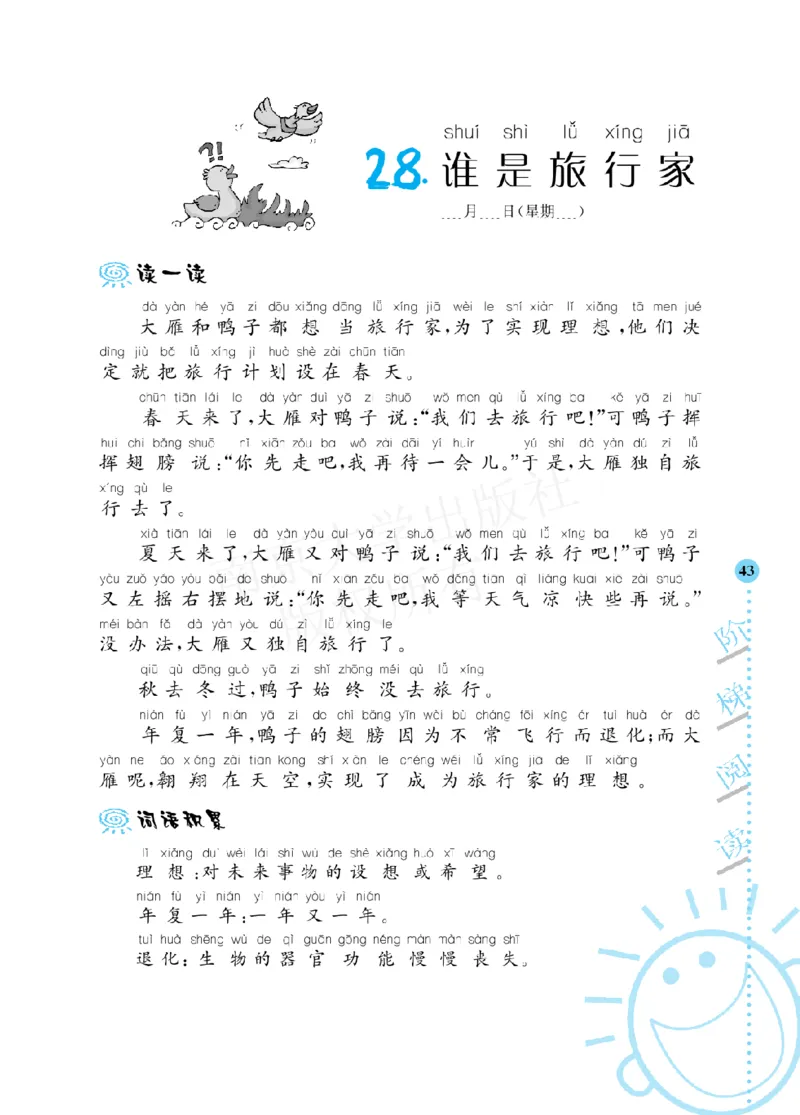 ?!
shuí shì lǚ xíng jiā
28. 谁是旅行家
月 日(星期 )
读一读
dà yàn hé yā zi dōu xiǎng dāng lǚ xíng jiā wèi le shí xiàn lǐ xiǎng tā men jué
大雁和鸭子都想当旅行家,为了实现理想,他们决
dìng jiù bǎ lǚ xíng jì huà shè zài chūn tiān
定就把旅行计划设在春天。
chūn tiān lái le dà yàn duì yā zi shuō wǒ men qù lǚ xíng ba kě yā zi huī
春天来了,大雁对鸭子说:“我们去旅行吧!”可鸭子挥
huī chì bǎng shuō nǐ xiān zǒu ba wǒ zài dāi yí huìr yú shì dà yàn dú zì lǚ
挥翅膀说:“你先走吧,我再待一会儿。”于是,大雁独自旅
xíng qù le
行去了。
xià tiān lái le dà yàn yòu duì yā zi shuō wǒ men qù lǚ xíng ba kě yā zi
夏天来了,大雁又对鸭子说:“我们去旅行吧!”可鸭子
yòu zuǒ yáo yòu bǎi de shuō nǐ xiān zǒu ba wǒ děng tiān qì liáng kuai xiē zài shuō
又左摇右摆地说:“你先走吧,我等天气凉快些再说。”
méi bàn fǎ dà yàn yòu dú zì lǚ xíng le
没办法,大雁又独自旅行了。
qiū qù dōng guò yā zi shǐ zhōng méi qù lǚ xíng
秋去冬过,鸭子始终没去旅行。
nián fù yì nián yā zi de chì bǎng yīn wèi bù cháng fēi xíng ér tuì huà ér dà
年复一年,鸭子的翅膀因为不常飞行而退化;而大
yàn ne áo xiáng zài tiān kōng shí xiàn le chéng wéi lǚ xíng jiā de lǐ xiǎng
雁呢,翱翔在天空,实现了成为旅行家的理想。
词语积累
lǐ xiǎng duì wèi lái shì wù de shè xiǎng huò xī wàng
理想:对未来事物的设想或希望。
nián fù yì nián yì nián yòu yì nián
年复一年:一年又一年。
tuì huà shēng wù de qì guān gōng néng màn màn sàng shī
退化:生物的器官功能慢慢丧失。
43
阶
梯
阅
读
南京大学出版社
版权所有